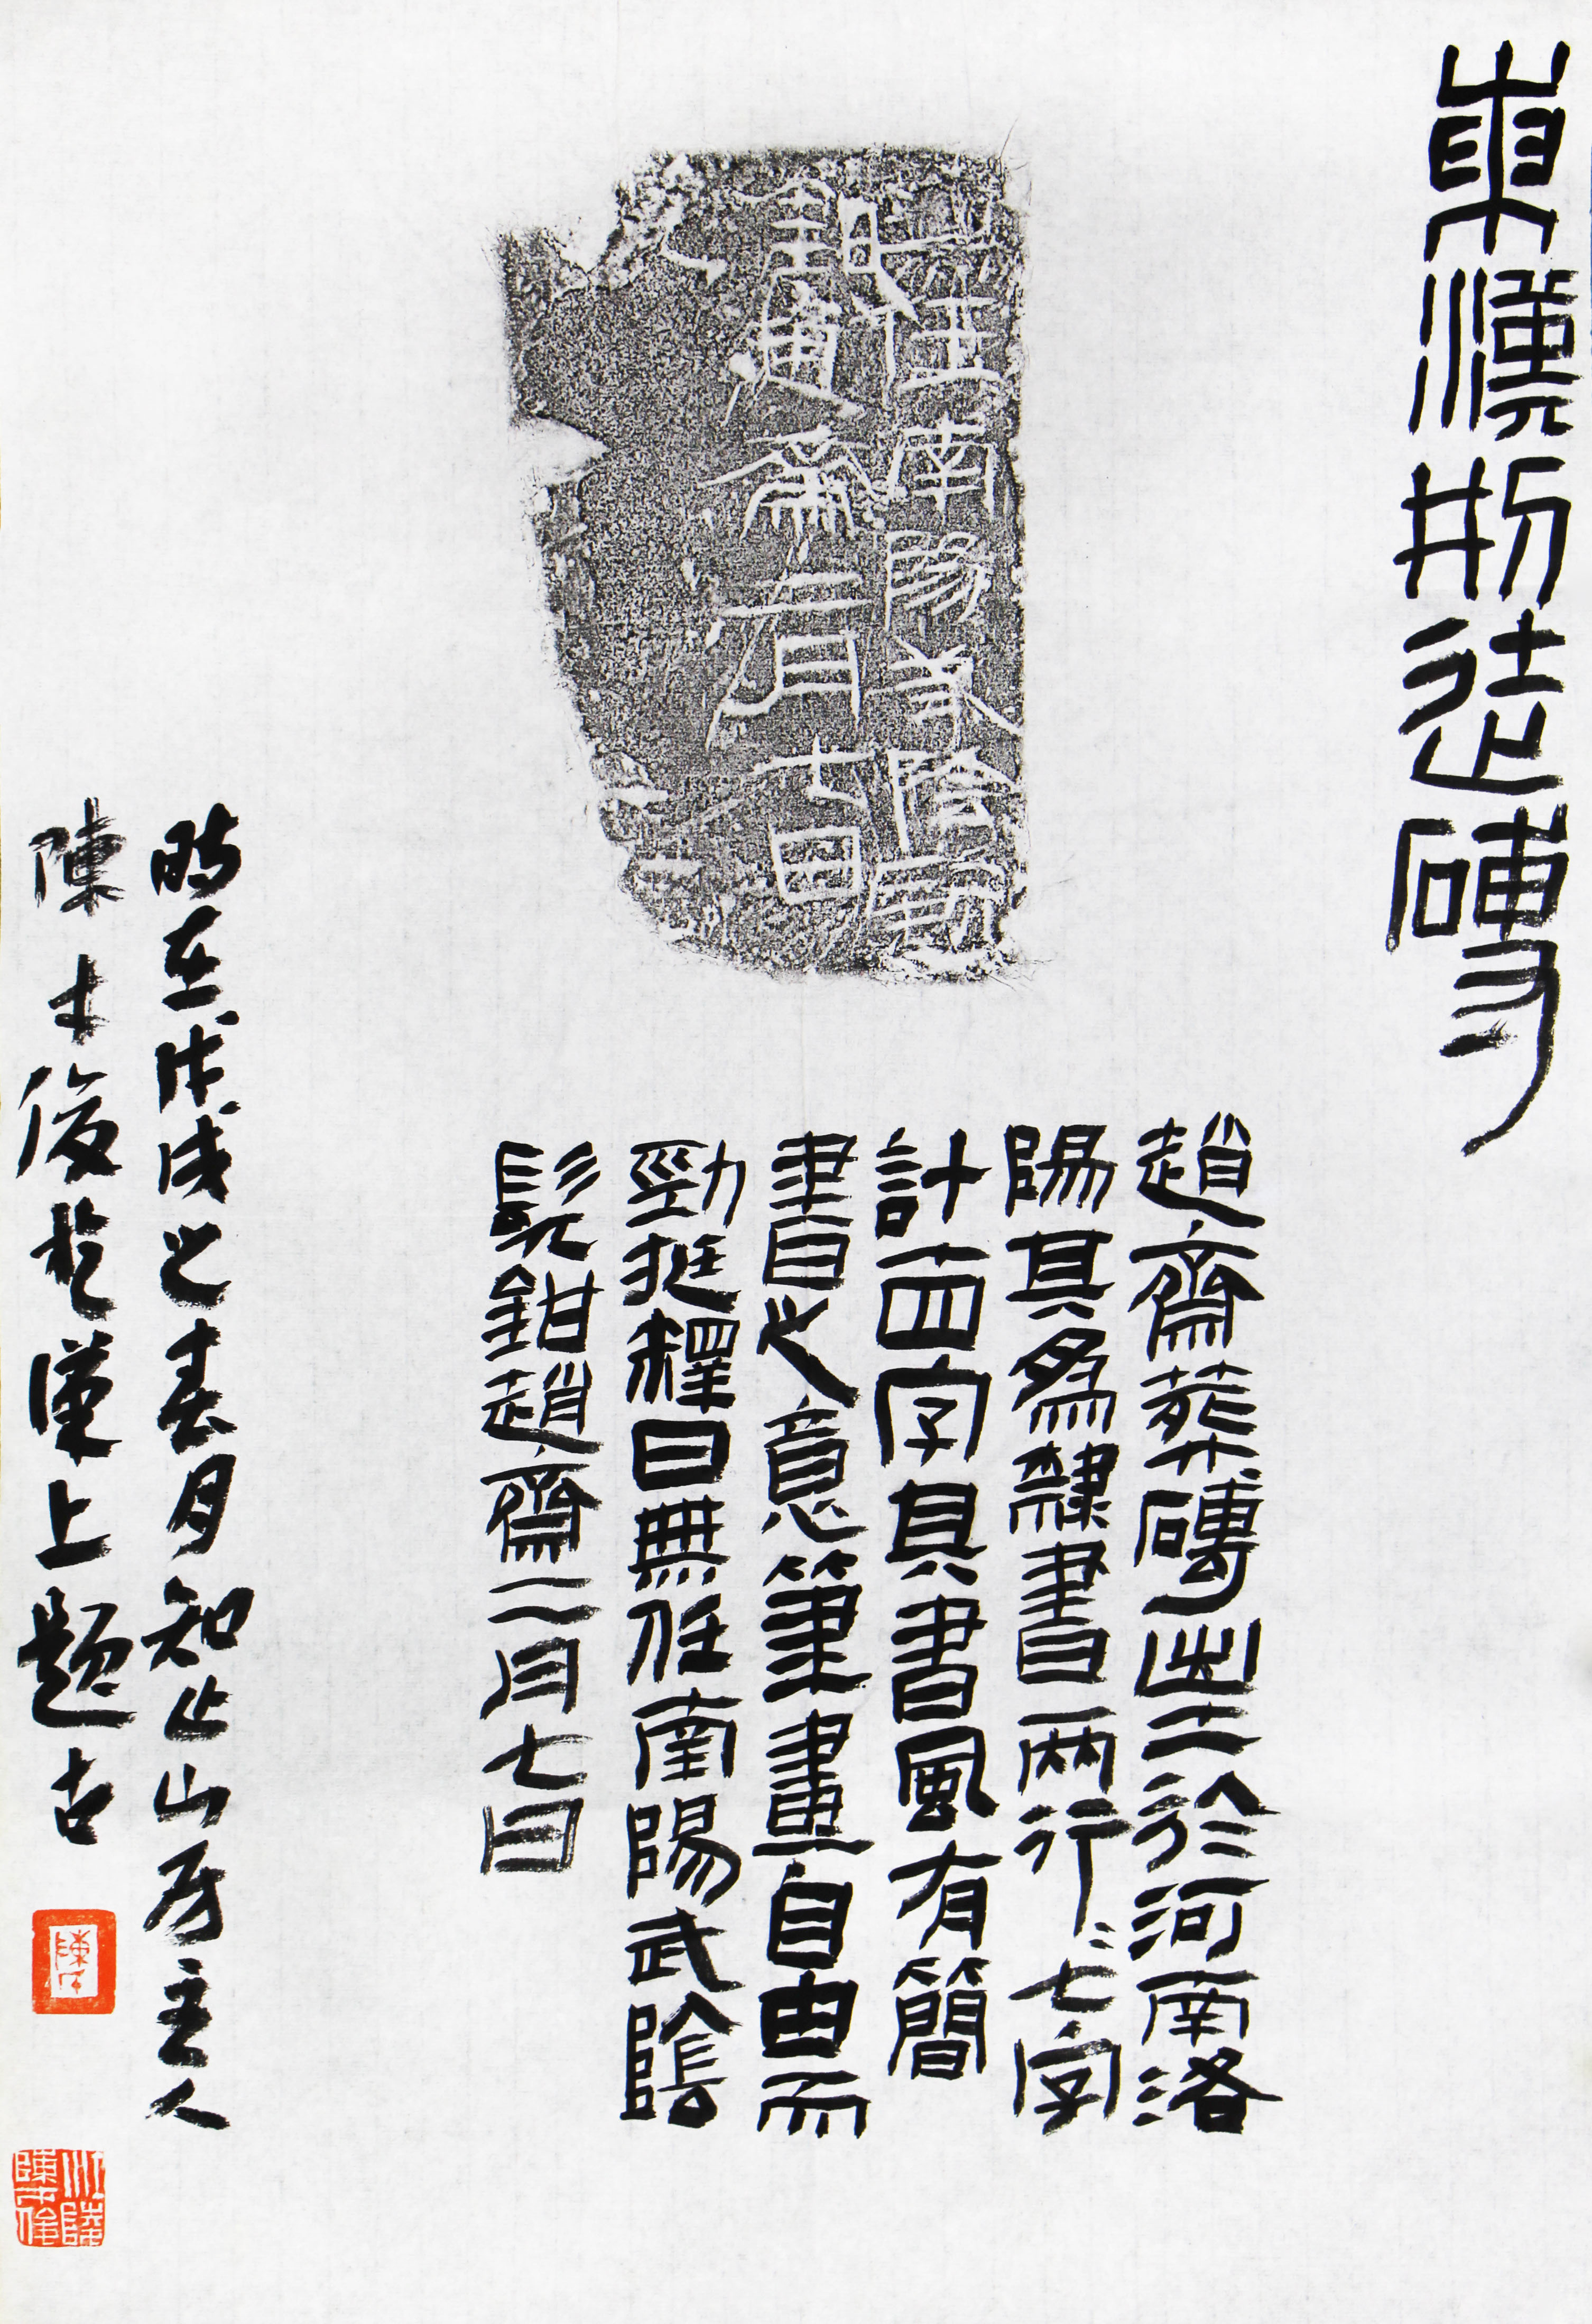 東漢刑徒磚
无任南陽武陰髡
鉗趙齋二月七日
趙齋葬磚出土於河南洛
陽其為隸書兩行〻七字
計十四字其書風有簡
書之意筆畫自由而
勁挺釋曰無任南陽武陰
髡鉗趙齋二月七日
時在戊戌之春月知止山房主人
陳士俊於漢上題古